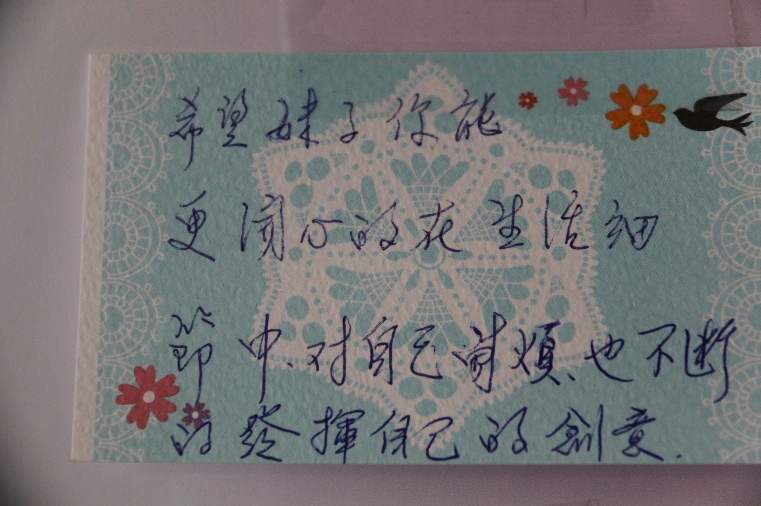 希望妹子你能
更開心的在生活細
節中、对自己會煩、也不断
的發揮自己的創意.